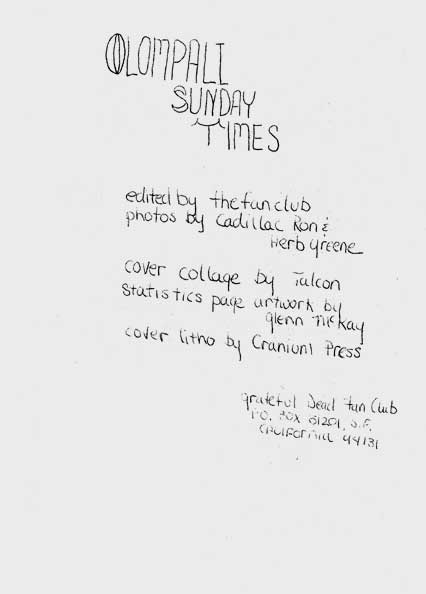 OLOMPALI
SUNDAY
TIMES
edited by the fan club
photos by Cadillac Ron &
Herb Greene
cover collage by Talcon
statistics page artwork by
glenn McKay
cover litho by Cranium Press
grateful Dead Fan Club
P.O. BOX 31201, S.F.
CALIFORNIA 94131